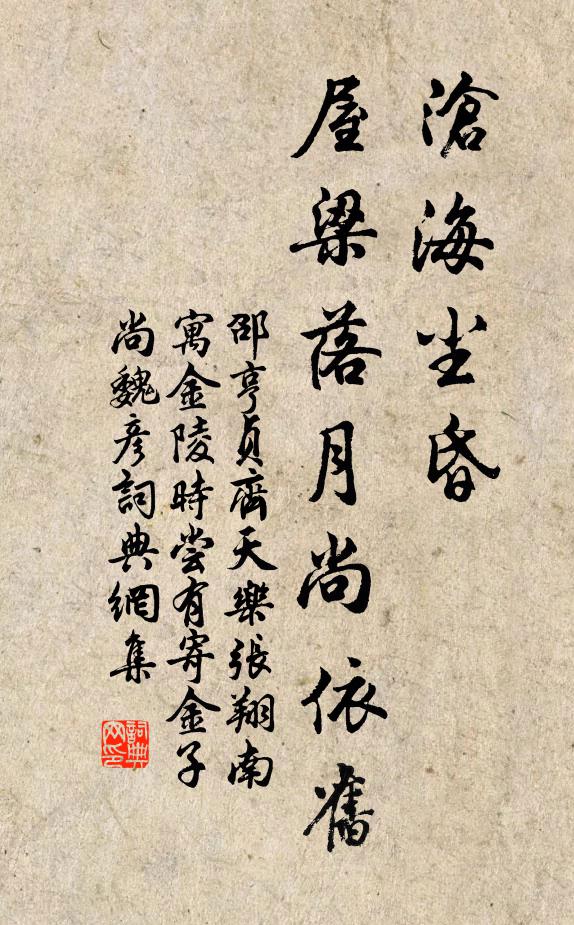 滄海尘昏
屋梁落月尚依舊
邵亨貞齊天樂張翔南
寓金陵時尝有寄金子
尚魏彦詞典網集
詞典网印